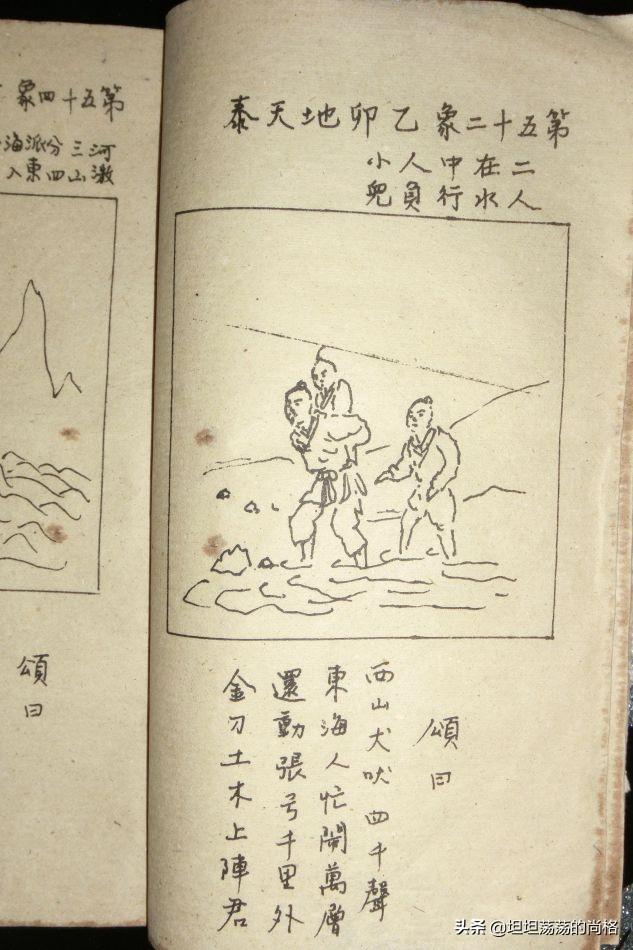 第五十二象乙卯地天泰
二人在水中行人負小兒
頌曰
西山犬吠四千聲
東海人忙鬧萬層
還動張弓千里外
金刀土木上陣君
第五十四象
河激三山分四派東海入
頌曰
头条 @坦坦荡荡的尚格